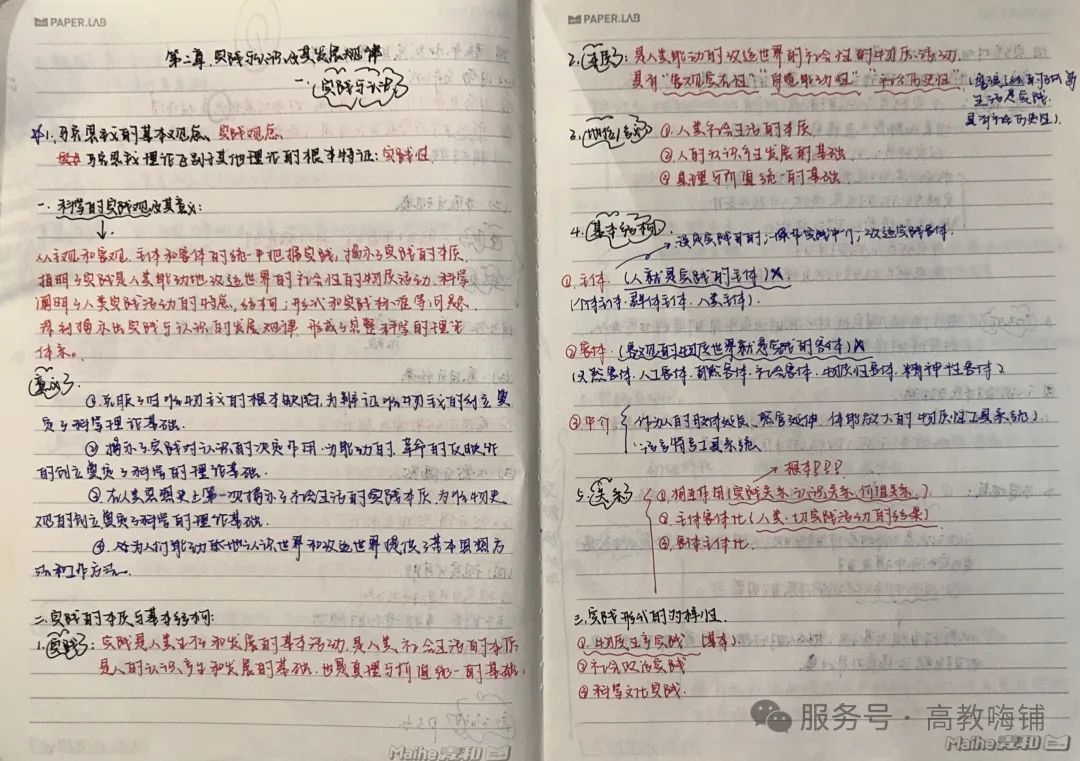 PAPER.LAB
第二章 实践与认识及其发展规律
一、实践与认识
☆1. 马克思主义的基本观点:实践观点
马克思主义理论区别于其他理论的根本特征:实践性
一、科学的实践观及其意义:
↓
从主观和客观、主体和客体的统一中把握实践,揭示了实践的本质
指明了实践是人类能动地改造世界的社会性的物质活动,科学
阐明了人类实践活动的特点,结构,形式和实践标准等问题
得到揭示出实践与认识的发展规律,形成了完整科学的理论
体系。
意义
①克服了旧唯物主义的根本缺陷,为辩证唯物主义的创立奠
定了科学理论基础.
②揭示了实践对认识的决定作用.为能动的,革命的反映论
的创立奠定了科学的理论基础.
③在人类思想史上第一次揭示了社会生活的实践本质,为唯物史
观的创立奠定了科学的理论基础.
④为人们能动地认识世界和改造世界提供了基本思想方
法和工作方法.
二、实践的本质与基本结构:
1. 实践:实践是人类生存和发展的基本活动,是人类社会生活的本质
是人的认识产生和发展的基础,也是真理与价值统一的基础.
Maihe麦和
PAPER.LAB
2. 本质:是人类能动的改造世界的社会性的物质活动.
具有"客观实在性""自觉能动性""社会历史性"
生活是实践
具有社会历史性).
3. 地位/意义 ①人类社会生活的本质.
②人的认识产生发展的基础
③真理与价值统一的基础
4. 基本结构
→设定实践目的;操作实践中介;改造实践客体.
①主体.(人就是实践的主体)×
(个体主体.群体主体.人类主体).
②客体.(客观的物质世界就是实践的客体)×
(天然客体.人工客体.自然客体.社会客体.物质性客体.精神性客体)
③中介 作为人的肢体延长、感官延伸、体能放大的物质性工具系统).
语言符号工具系统
→根本!!!
5. 关系 ①相互作用(实践关系.认识关系.价值关系.)
②主体客体化(人类一切实践活动的结果)
③客体主体化.
三、实践形式的多样性.
①物质生产实践(基本)
②社会政治实践
③科学文化实践.
服务号·高教嗨铺
Maihe麦和